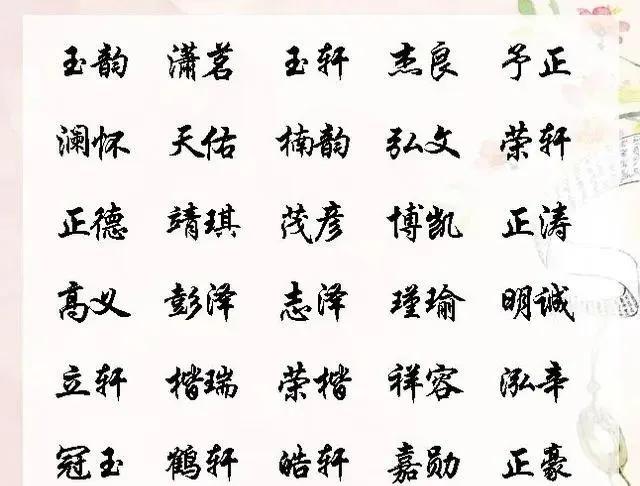 玉韵 潇茗 玉轩 杰良 予正
澜怀 天佑 楠韵 弘文 荣轩
正德 靖琪 茂彦 博凯 正涛
高义 彭泽 志泽 瑾瑜 明诚
立轩 楷瑞 荣楷 祥容 泓辛
冠玉 鹤轩 皓轩 嘉勋 正豪